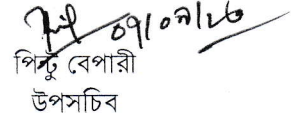 ০৭/০৭/২৬
পিন্টু বেপারী
উপসচিব